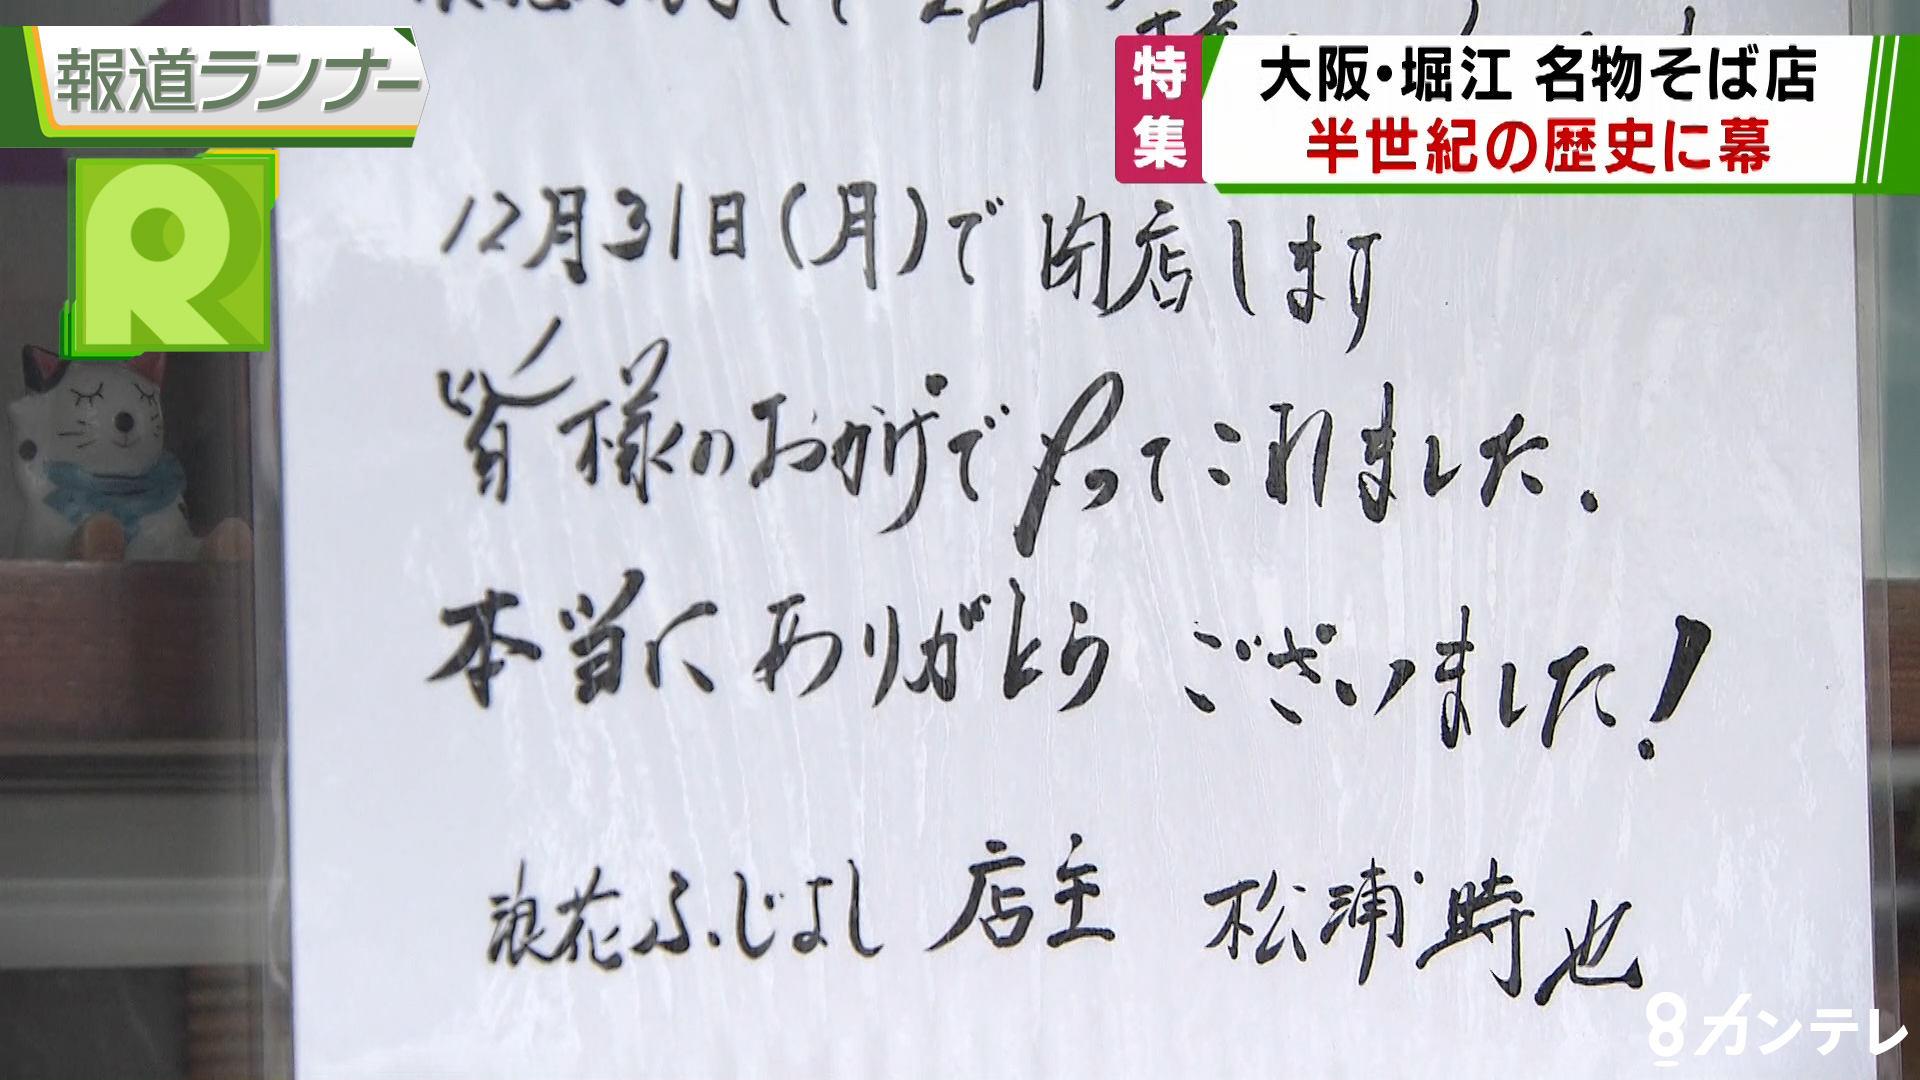 報道ランナー
R
特集
大阪・堀江 名物そば店
半世紀の歴史に幕
12月31日(月)で閉店します
皆様のおかげでやってこれました.
本当にありがとう ございました!
浪花ふじよし 店主 松浦時也
8カンテレ